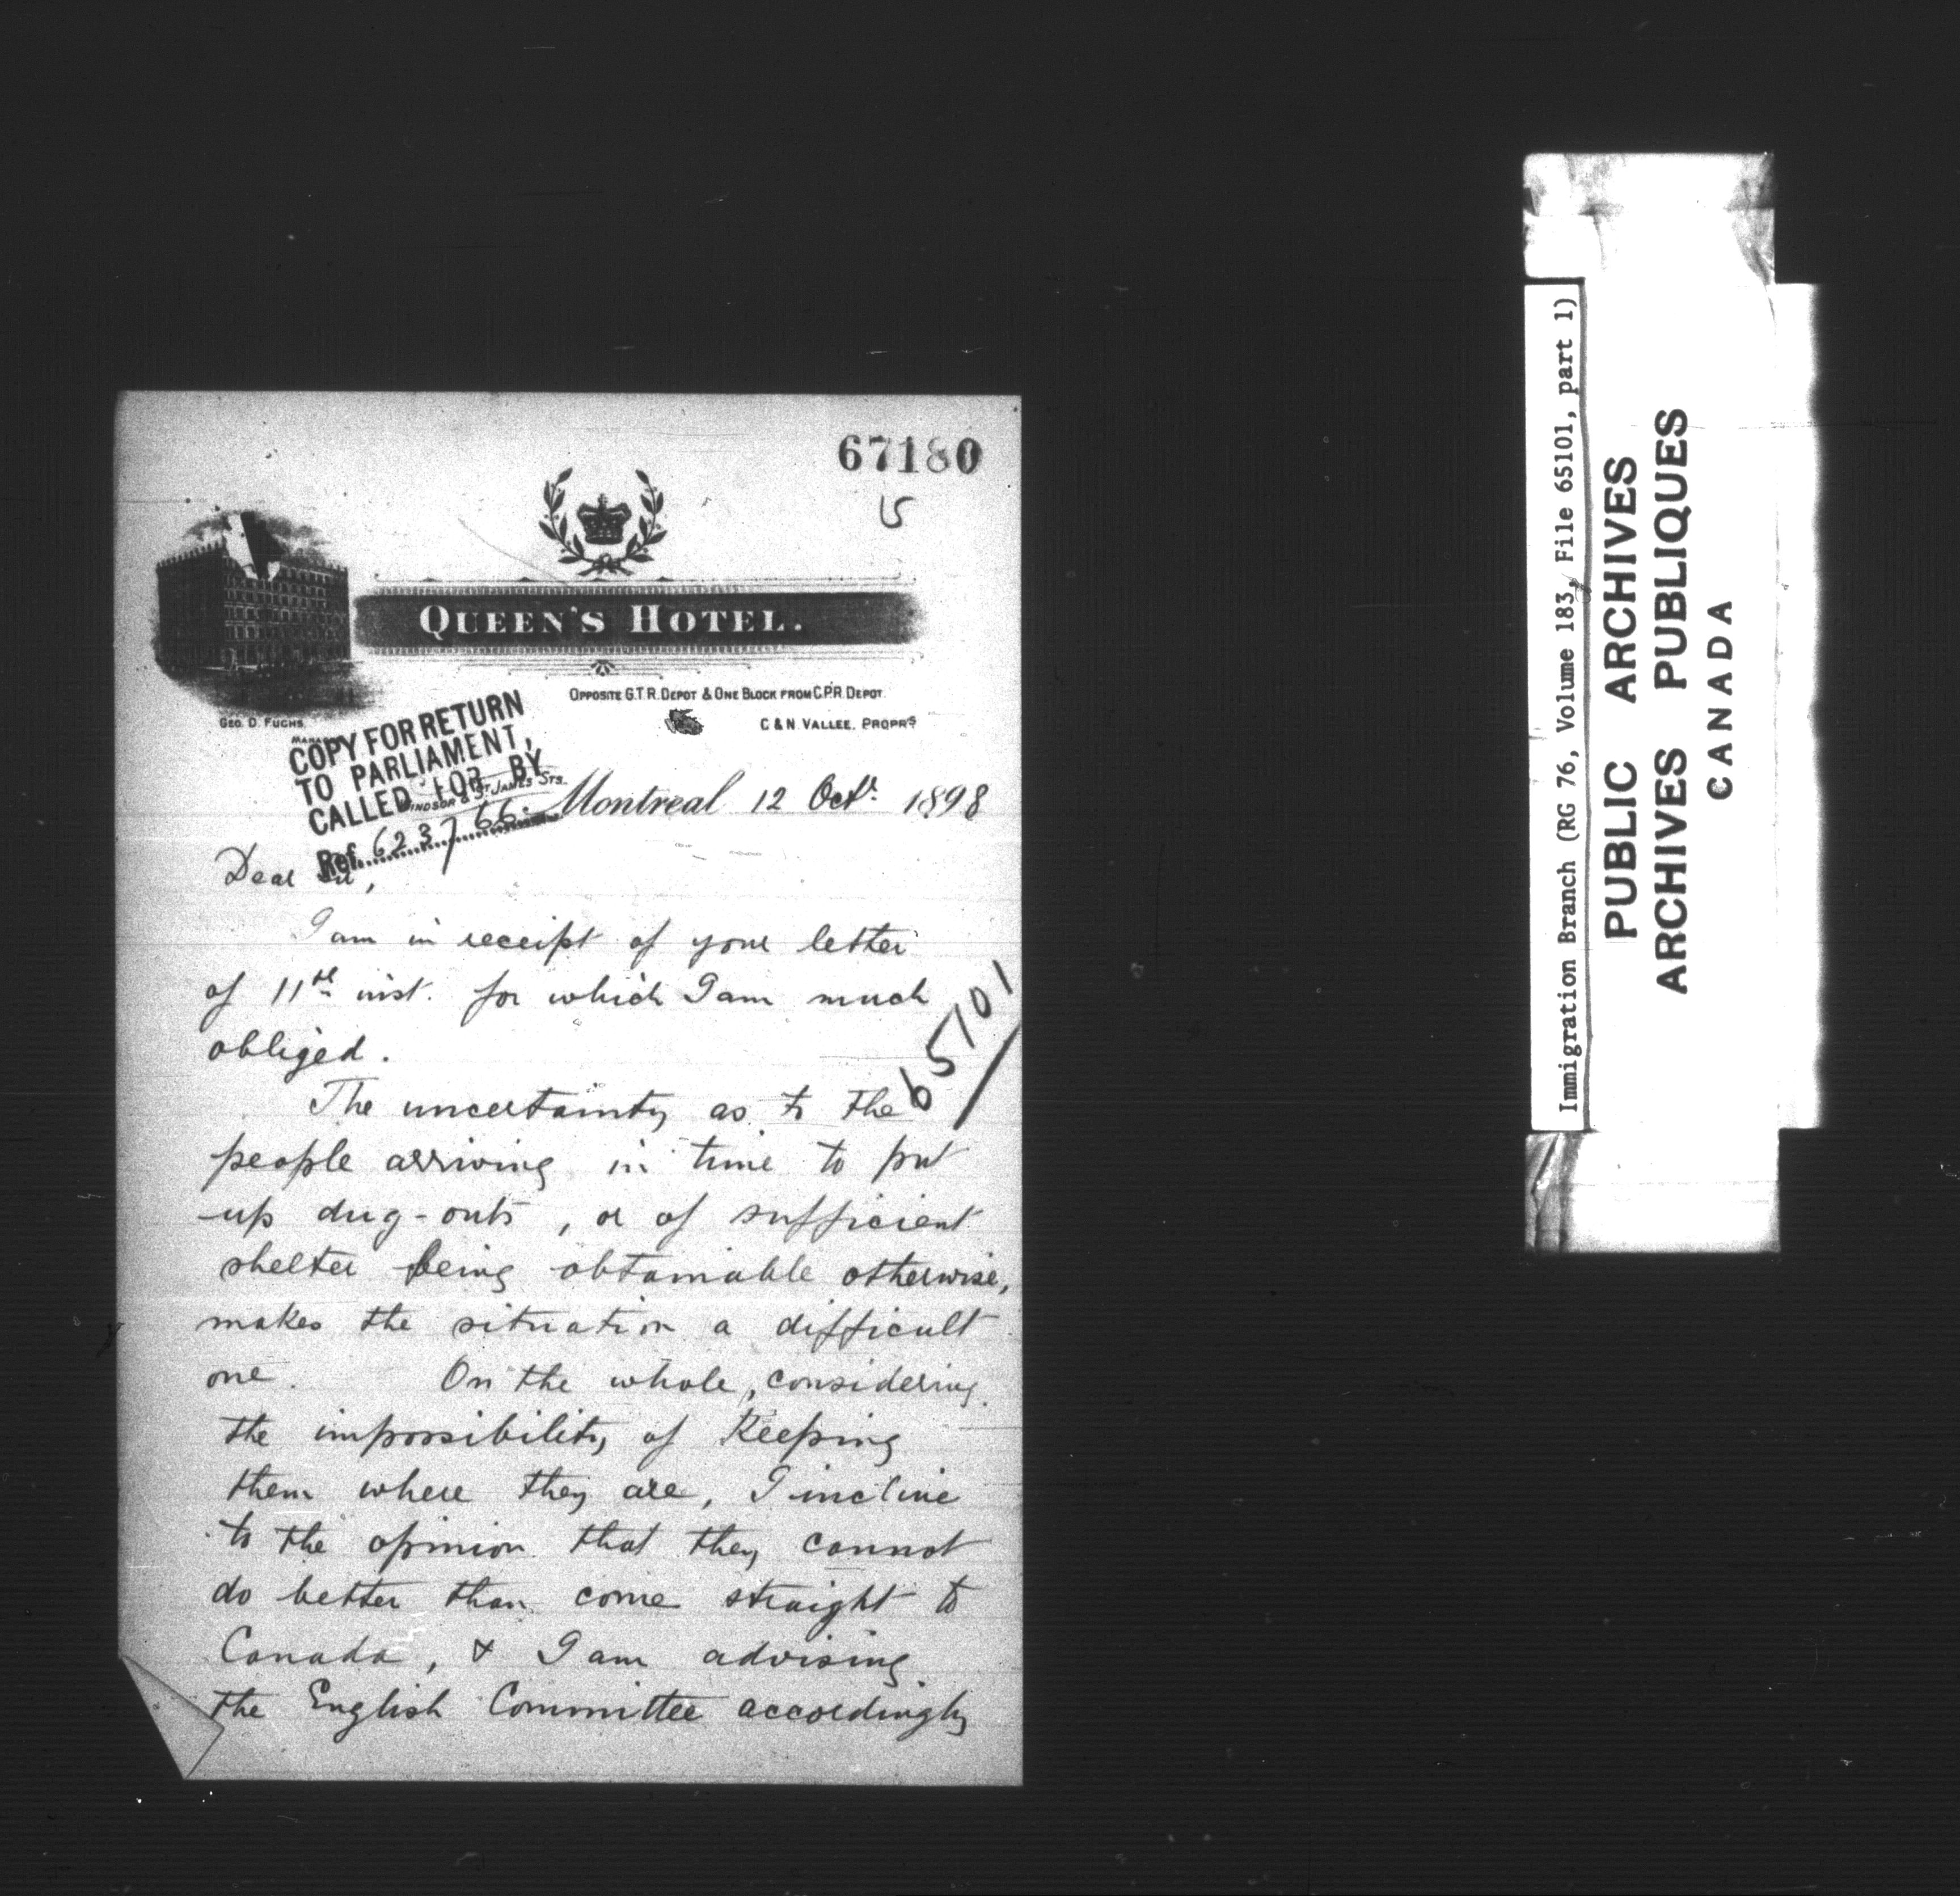 67180
5
QUEEN'S HOTEL.
OPPOSITE G.T.R. DEPOT & ONE BLOCK FROM C.P.R. DEPOT.
GEO. D. FUCHS,
MANAGER
C & N. VALLEE, PROPRS
COPY FOR RETURN
TO PARLIAMENT,
CALLED FOR BY
WINDSOR & ST JAMES STS.
Ref. 623766.
Montreal 12 Octr. 1898
Dear Sir,
I am in receipt of your letter
of 11th inst. for which I am much
obliged.
65101
The uncertainty as to the
people arriving in time to put
up dug-outs, or of sufficient
shelter being obtainable otherwise,
makes the situation a difficult
one. On the whole, considering
the impossibility of keeping
them where they are, I incline
to the opinion that they cannot
do better than come straight to
Canada, & I am advising
the English Committee accordingly
Immigration Branch (RG 76, Volume 183, File 65101, part 1)
PUBLIC ARCHIVES
ARCHIVES PUBLIQUES
CANADA